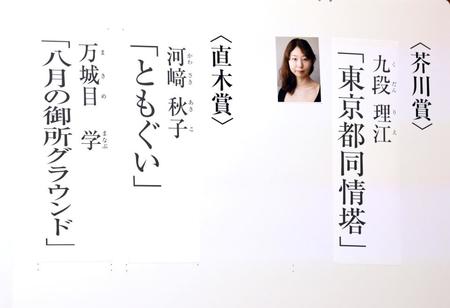 〈芥川賞〉
九段 理江
くだん りえ
「東京都同情塔」
〈直木賞〉
河﨑 秋子
かわさき あきこ
「ともぐい」
万城目 学
まきめ まなぶ
「八月の御所グラウンド」